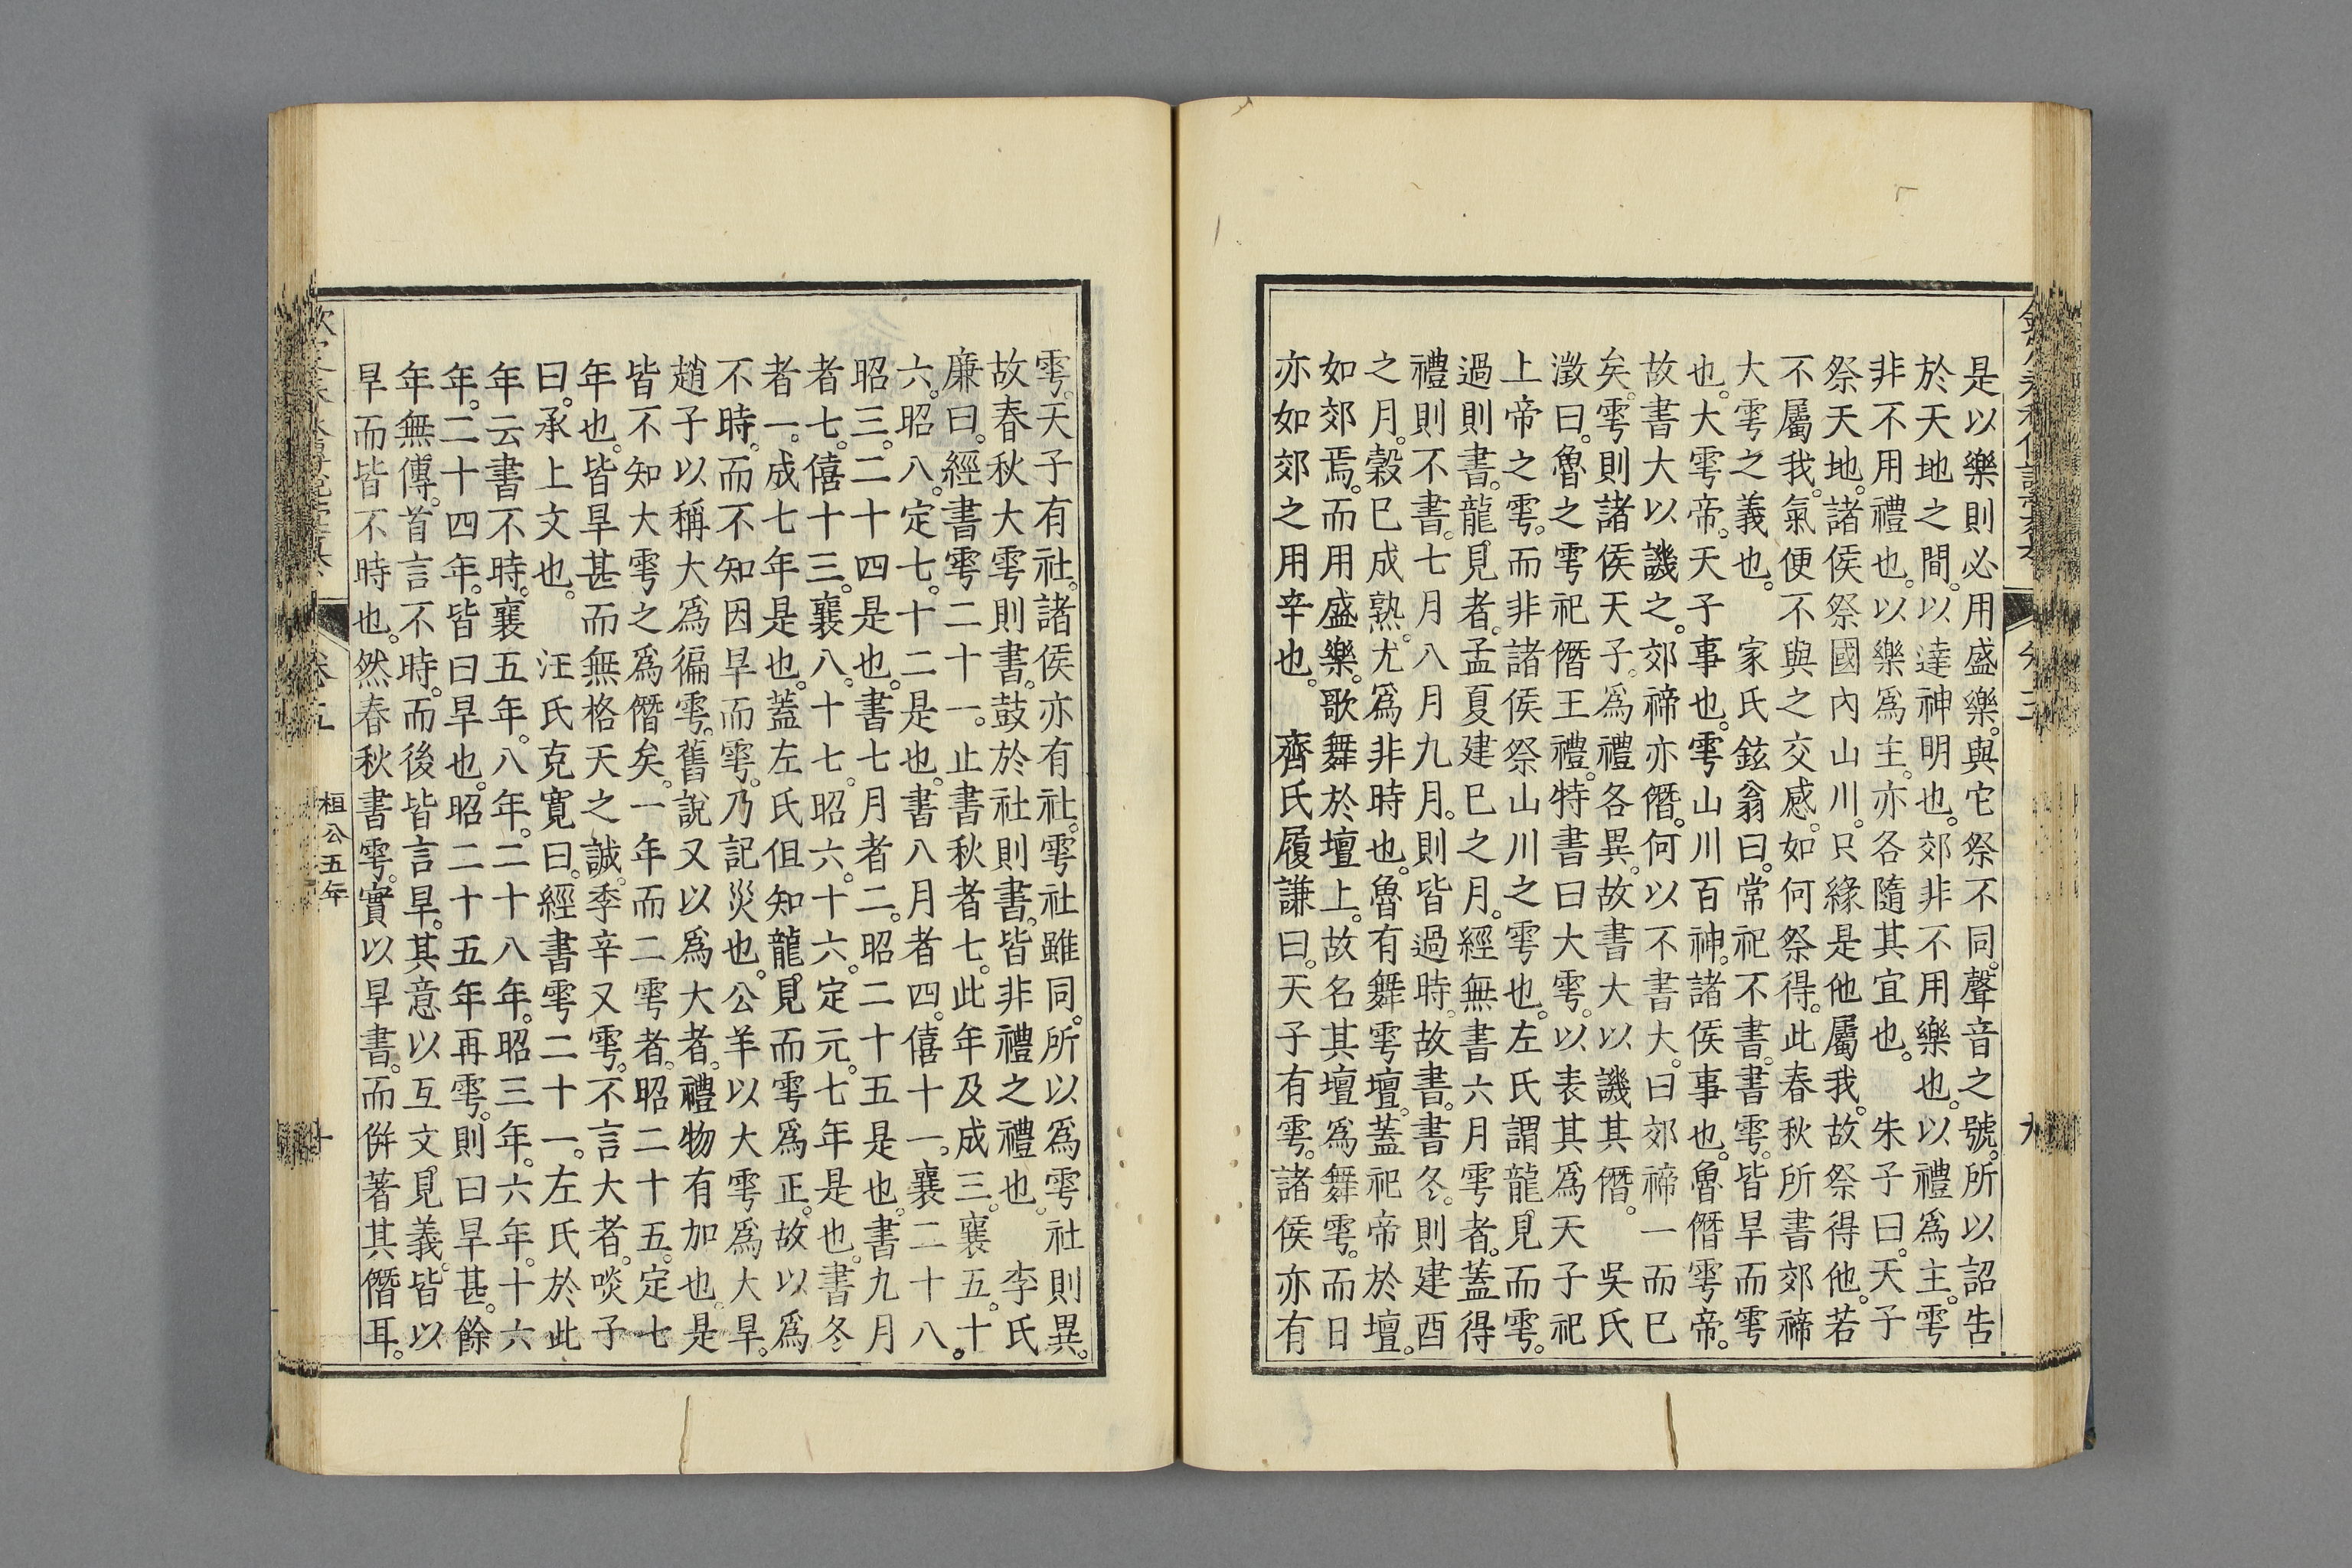 是以樂則必用盛樂。與它祭不同。聲音之號。所以詔告
於天地之間。以達神明也。郊非不用樂也。以禮爲主。雩
非不用禮也。以樂爲主。亦各隨其宜也。　朱子曰。天子
祭天地。諸侯祭國內山川。只緣是他屬我。故祭得他。若
不屬我。氣便不與之交感。如何祭得。此春秋所書郊禘
大雩之義也。　家氏鉉翁曰。常祀不書。書雩。皆旱而雩
也。大雩帝。天子事也。雩山川百神。諸侯事也。魯僭雩帝。
故書大以譏之。郊禘亦僭。何以不書大。曰郊禘一而已
矣。雩則諸侯天子。爲禮各異。故書大以譏其僭。　吳氏
澂曰。魯之雩祀僭王禮。特書曰大雩。以表其爲天子祀
上帝之雩。而非諸侯祭山川之雩也。左氏謂龍見而雩。
過則書。龍見者。孟夏建巳之月。經無書六月雩者。蓋得
禮則不書。七月八月九月。則皆過時。故書。書冬。則建酉
之月。穀已成熟。尤爲非時也。魯有舞雩壇。蓋祀帝於壇。
如郊焉。而用盛樂。歌舞於壇上。故名其壇爲舞雩。而日
亦如郊之用辛也。　齊氏履謙曰。天子有雩。諸侯亦有
雩。天子有社。諸侯亦有社。雩社雖同。所以爲雩社則異。
故春秋大雩則書。鼓於社則書。皆非禮之禮也。　李氏
廉曰。經書雩二十一。止書秋者七。此年及成三。襄五。十
六。昭八。定七。十二是也。書八月者四。僖十一。襄二十八
昭三。二十四是也。書七月者二。昭二十五是也。書九月
者七。僖十三。襄八。十七。昭六。十六。定元。七年是也。書冬
者一。成七年是也。蓋左氏但知龍見而雩爲正。故以爲
不時。而不知因旱而雩。乃記災也。公羊以大雩爲大旱。
趙子以稱大爲徧雩。舊說又以爲大者。禮物有加也。是
皆不知大雩之爲僭矣。一年而二雩者。昭二十五。定七
年也。皆旱甚而無格天之誠。季辛又雩。不言大者。啖子
曰。承上文也。　汪氏克寬曰。經書雩二十一。左氏於此
年云書不時。襄五年。八年。二十八年。昭三年。六年。十六
年。二十四年。皆曰旱也。昭二十五年再雩。則曰旱甚。餘
年無傳。首言不時。而後皆言旱。其意以互文見義。皆以
旱而皆不時也。然春秋書雩。實以旱書。而倂著其僭耳。
桓公五年